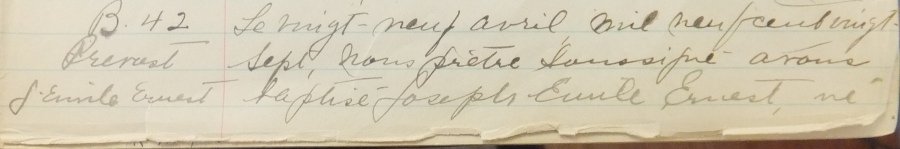 B. 42 Le vingt-neuf avril, mil neuf cent vingt-
Prevost sept, nous prêtre soussigné avons
J. Emile Ernest baptisé Joseph Emile Ernest, né